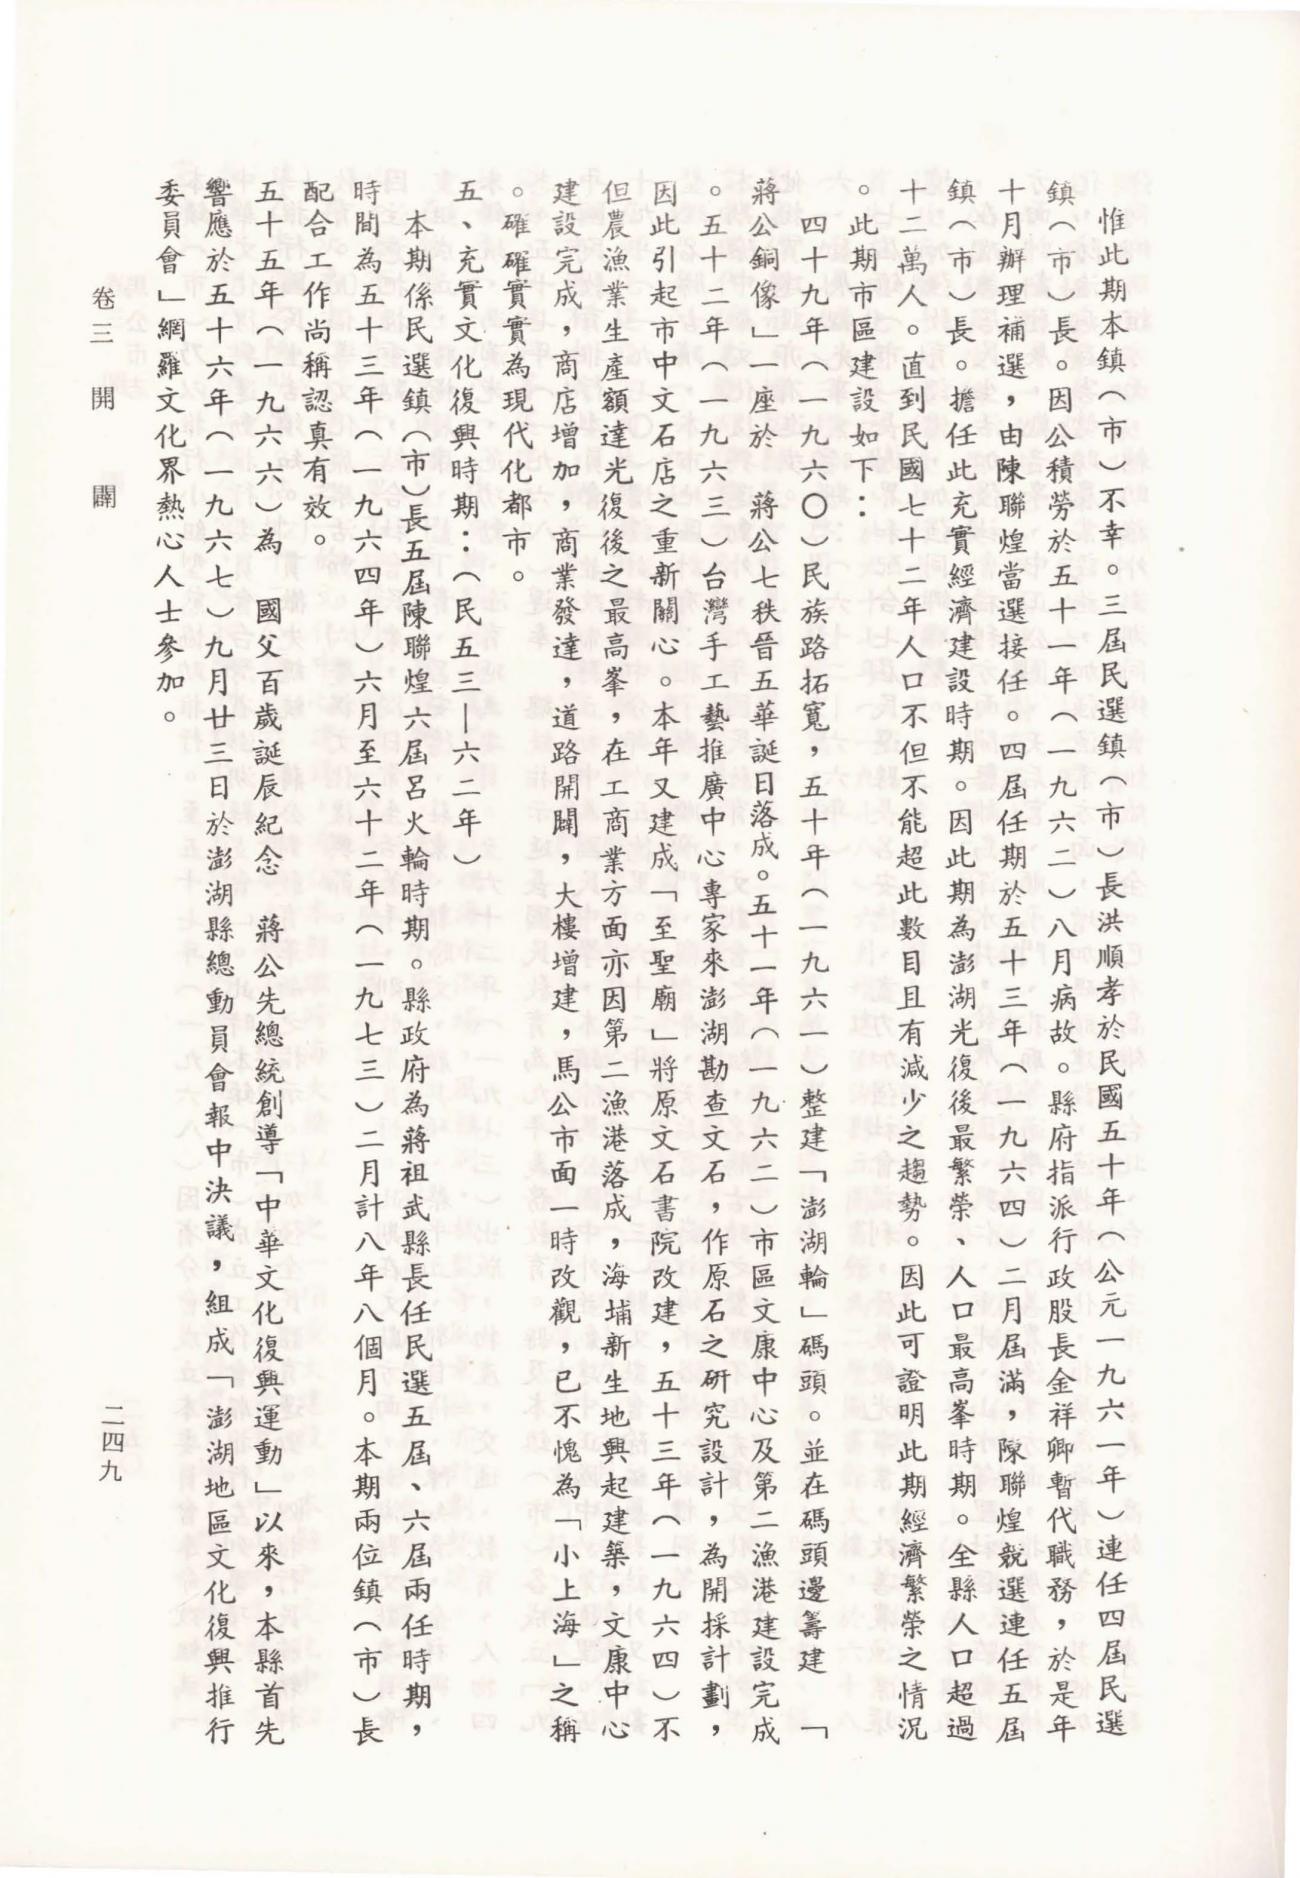 惟此期本鎮（市）不幸。三屆民選鎮（市）長洪順孝於民國五十年（公元一九六一年）連任四屆民選
鎮（市）長。因公積勞於五十一年（一九六二）八月病故。縣府指派行政股長金祥卿暫代職務，於是年
十月辦理補選，由陳聯煌當選接任。四屆任期於五十三年（一九六四）二月屆滿，陳聯煌競選連任五屆
鎮（市）長。擔任此充實經濟建設時期。因此期為澎湖光復後最繁榮、人口最高峯時期。全縣人口超過
十二萬人。直到民國七十二年人口不但不能超此數目且有減少之趨勢。因此可證明此期經濟繁榮之情況
。此期市區建設如下：
四十九年（一九六〇）民族路拓寬，五十年（一九六一）整建「澎湖輪」碼頭。並在碼頭邊籌建「
蔣公銅像」一座於　蔣公七秩晉五華誕日落成。五十一年（一九六二）市區文康中心及第二漁港建設完成
。五十二年（一九六三）台灣手工藝推廣中心專家來澎湖勘查文石，作原石之研究設計，為開採計劃，
因此引起市中文石店之重新關心。本年又建成「至聖廟」將原文石書院改建，五十三年（一九六四）不
但農漁業生產額達光復後之最高峯，在工商業方面亦因第二漁港落成，海埔新生地興起建築，文康中心
建設完成，商店增加，商業發達，道路開闢，大樓增建，馬公市面一時改觀，已不愧為「小上海」之稱
。確確實實為現代化都市。
五、充實文化復興時期：（民五三—六二年）
本期係民選鎮（市）長五屆陳聯煌六屆呂火輪時期。縣政府為蔣祖武縣長任民選五屆、六屆兩任時期，
時間為五十三年（一九六四年）六月至六十二年（一九七三）二月計八年八個月。本期兩位鎮（市）長
配合工作尚稱認真有效。
五十五年（一九六六）為　國父百歲誕辰紀念　蔣公先總統創導「中華文化復興運動」以來，本縣首先
響應於五十六年（一九六七年九月廿三日於澎湖縣總動員會報中決議，組成「澎湖地區文化復興推行
委員會」網羅文化界熱心人士參加。
卷三　開　闢
二四九